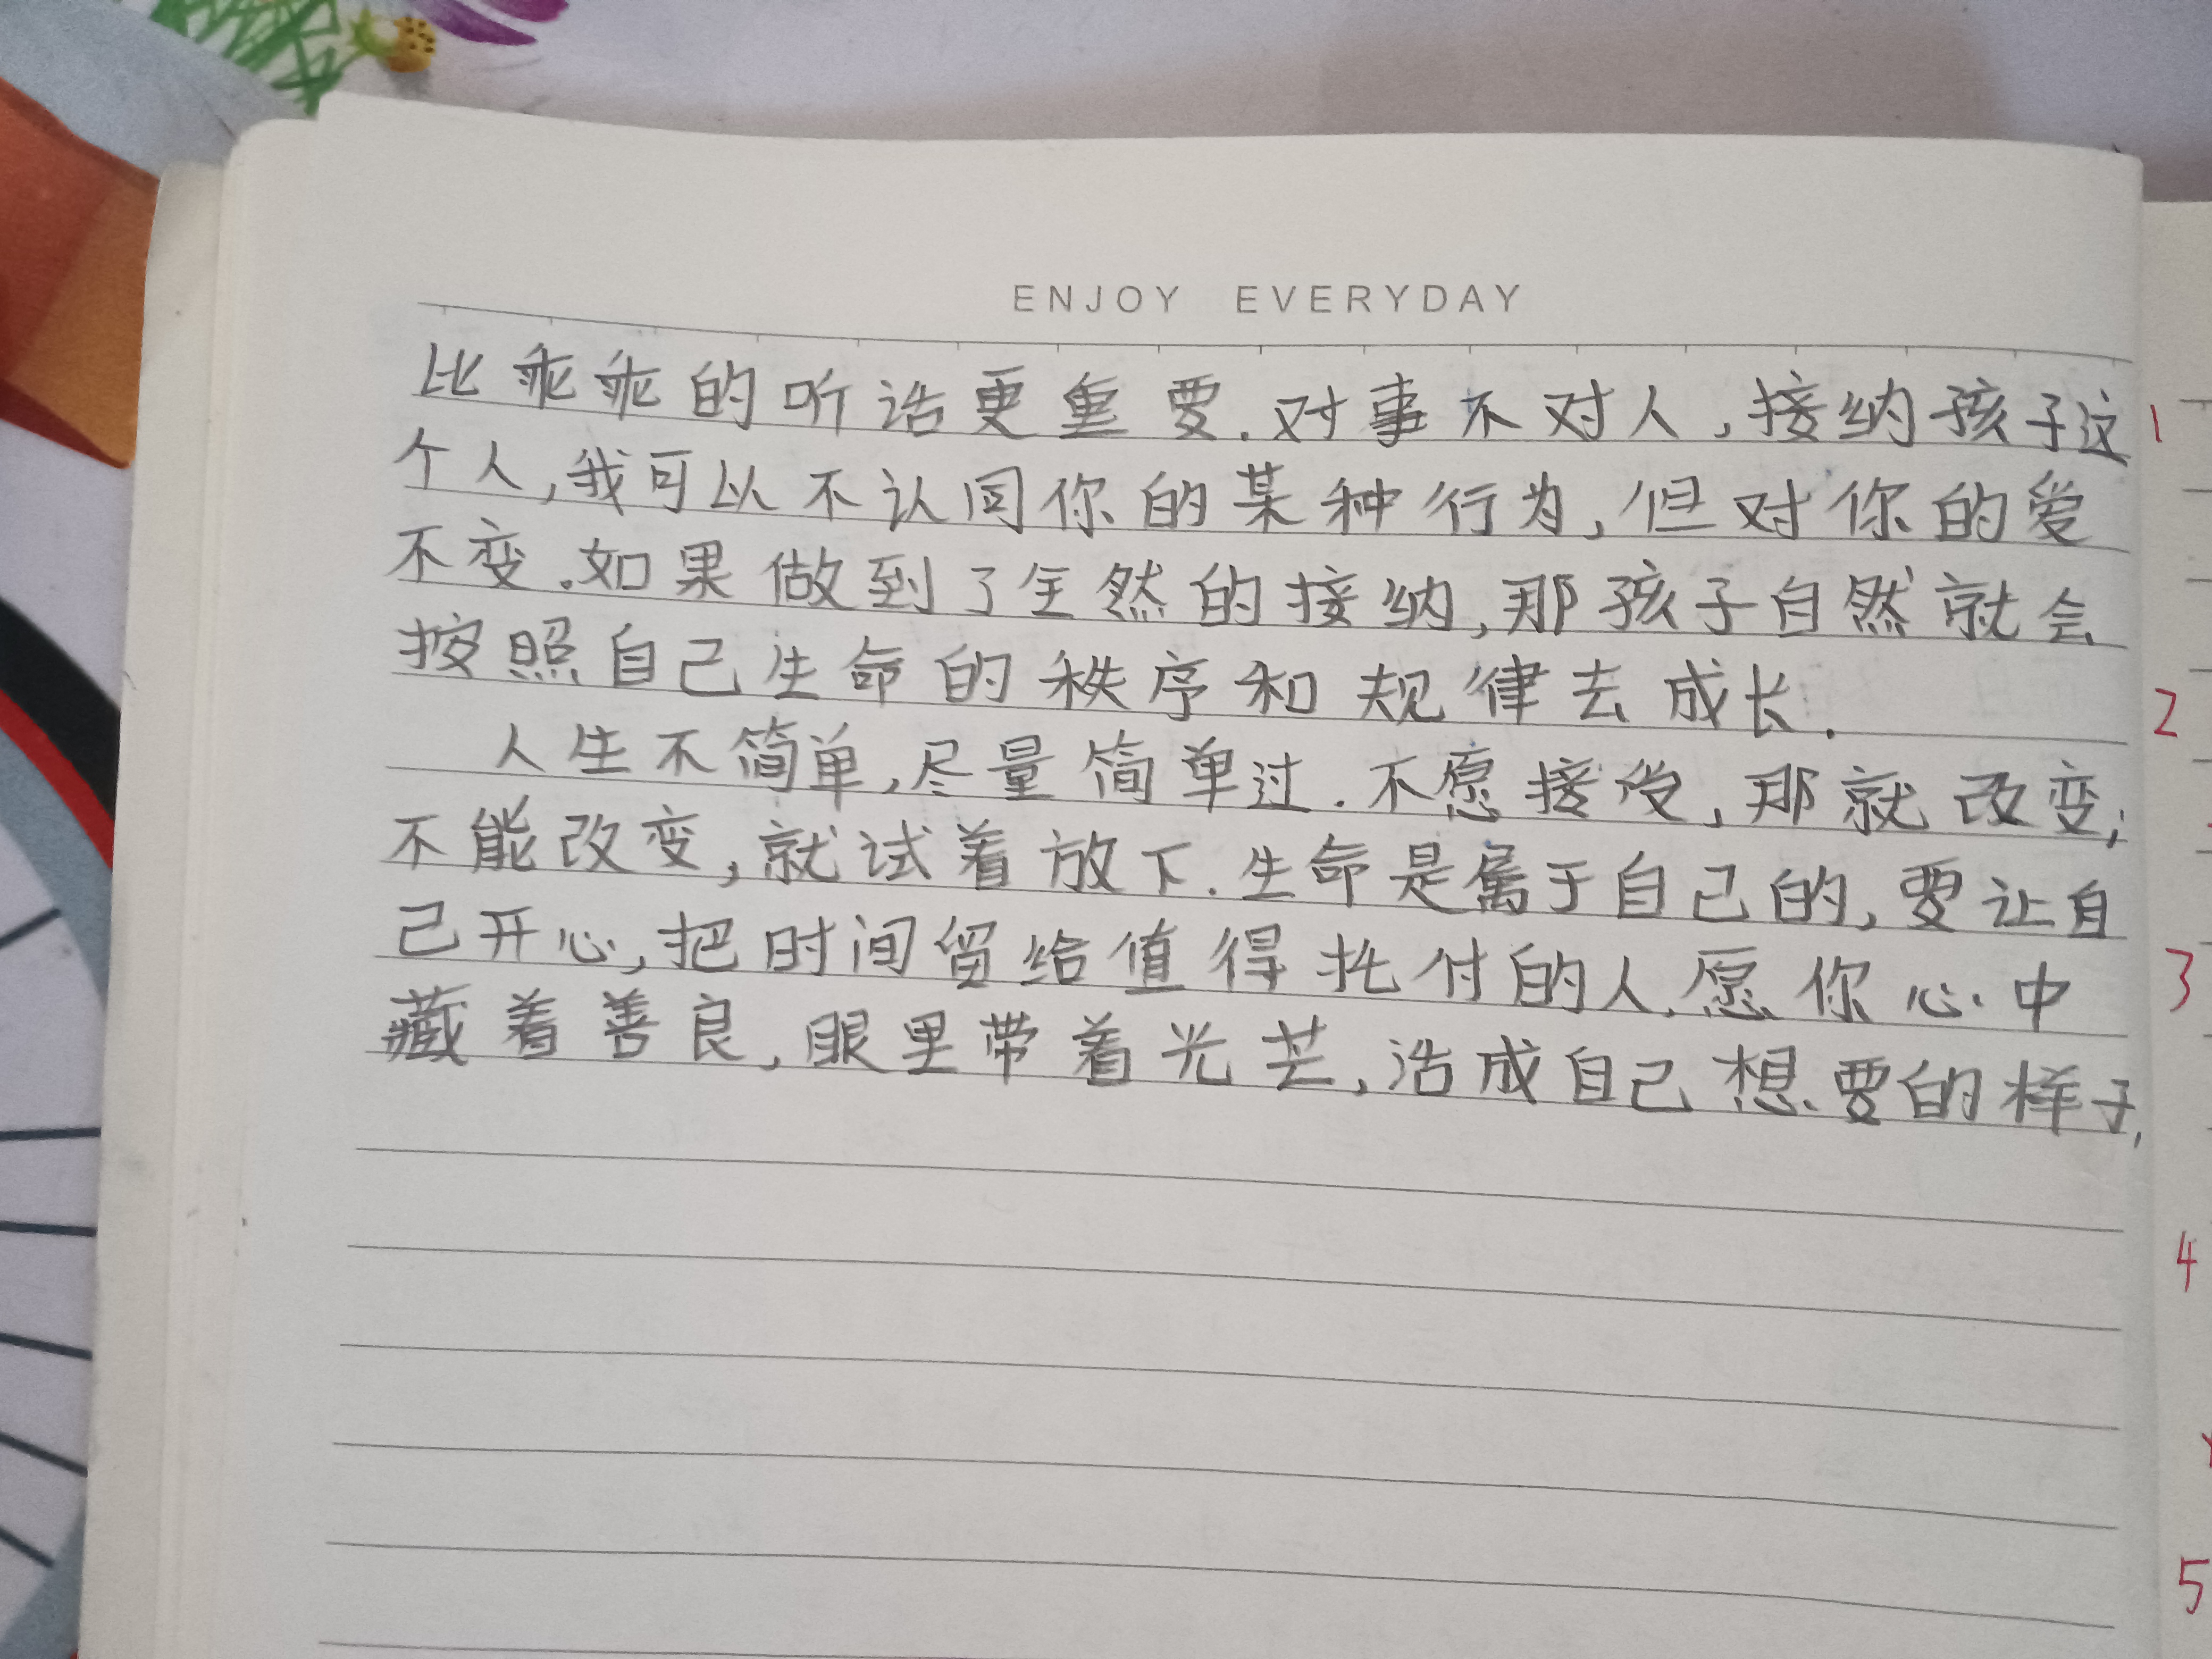 ENJOY EVERYDAY
比乖乖的听话更重要.对事不对人,接纳孩子这
个人,我可以不认同你的某种行为,但对你的爱
不变.如果做到了全然的接纳,那孩子自然就会
按照自己生命的秩序和规律去成长.
人生不简单,尽量简单过.不愿接受,那就改变;
不能改变,就试着放下.生命是属于自己的,要让自
己开心,把时间留给值得托付的人.愿你心中
藏着善良,眼里带着光芒,活成自己想要的样子,
1
2
3
4
5